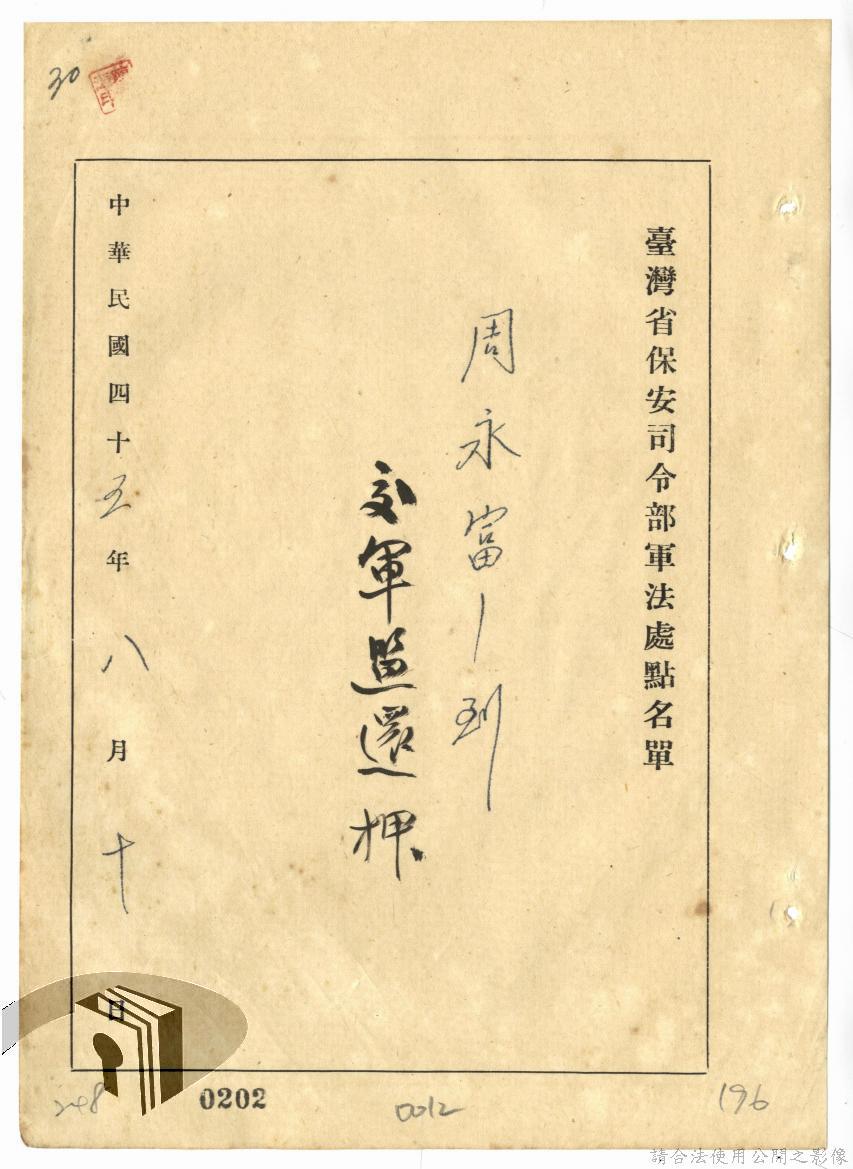 30
臺灣省保安司令部軍法處點名單
周永富 到
交軍監還押
中華民國四十五年八月十日
248
0202
0012
196
請合法使用公開之影像